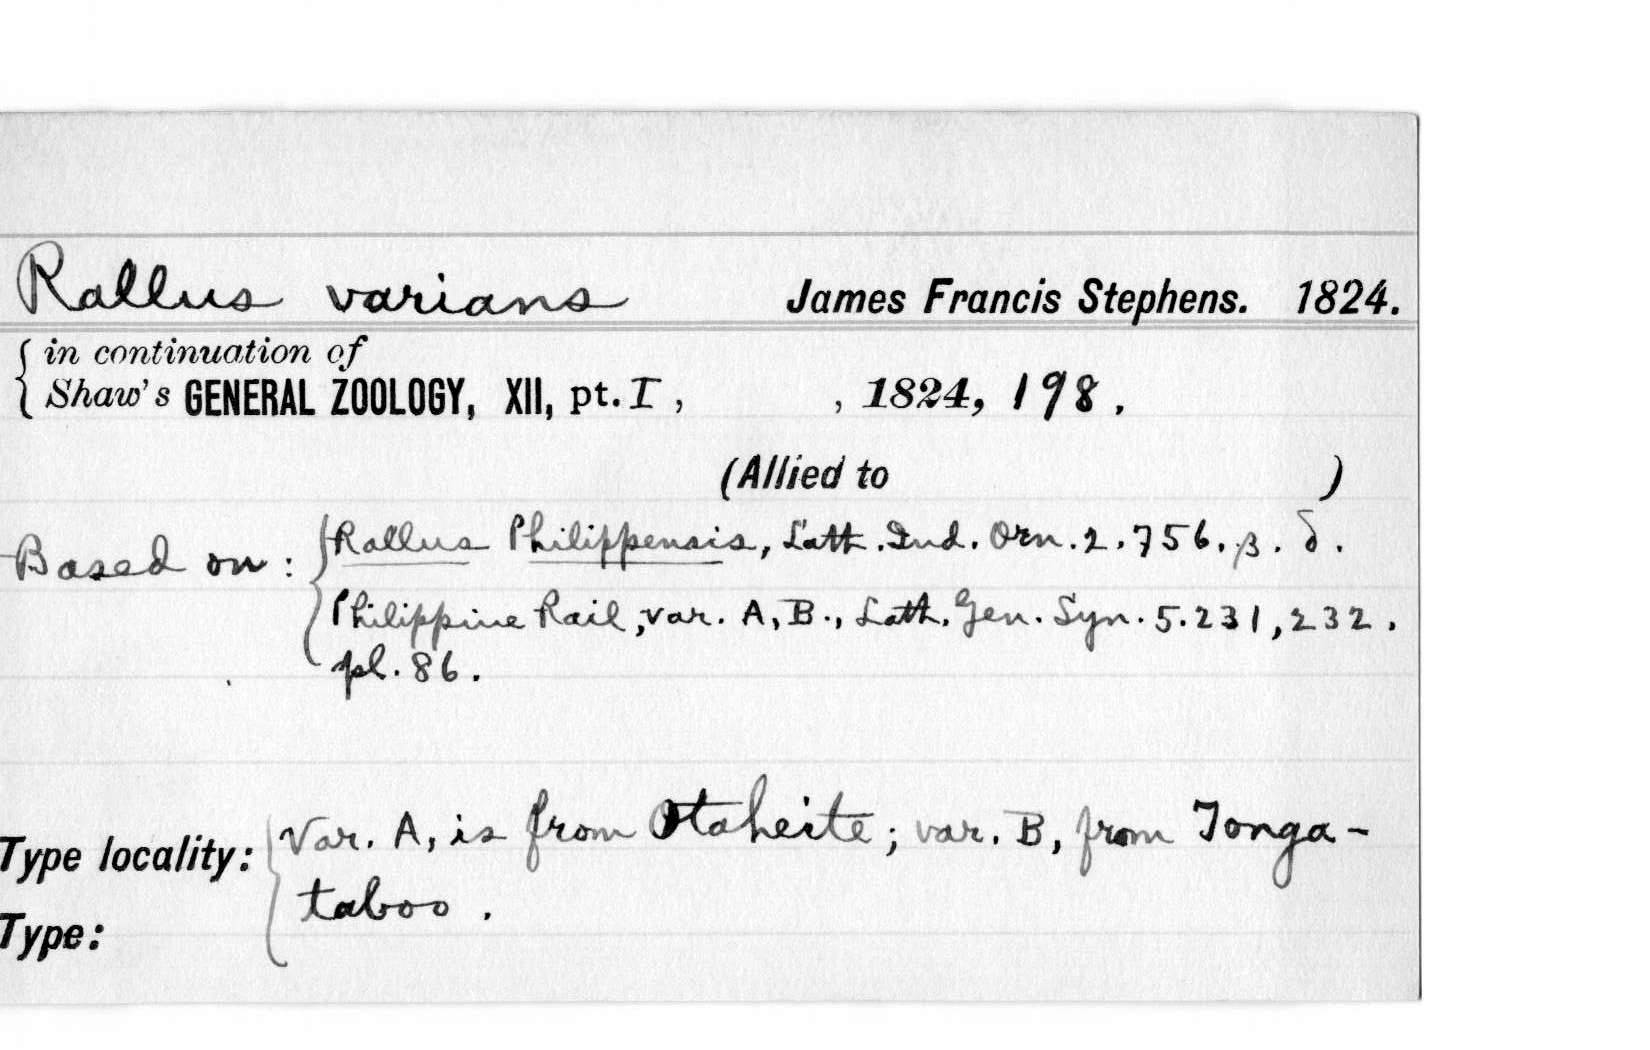 Rallus varians James Francis Stephens. 1824.
in continuation of
Shaw's GENERAL ZOOLOGY, XII, pt. I, , 1824, 198.
(Allied to )
Based on: Rallus Philippensis, Lath. Ind. Orn. 2. 756. β. δ.
Philippine Rail, var. A, B., Lath. Gen. Syn. 5. 231, 232.
pl. 86.
Type locality: Var. A, is from Otaheite; var. B, from Tonga-
taboo.
Type: